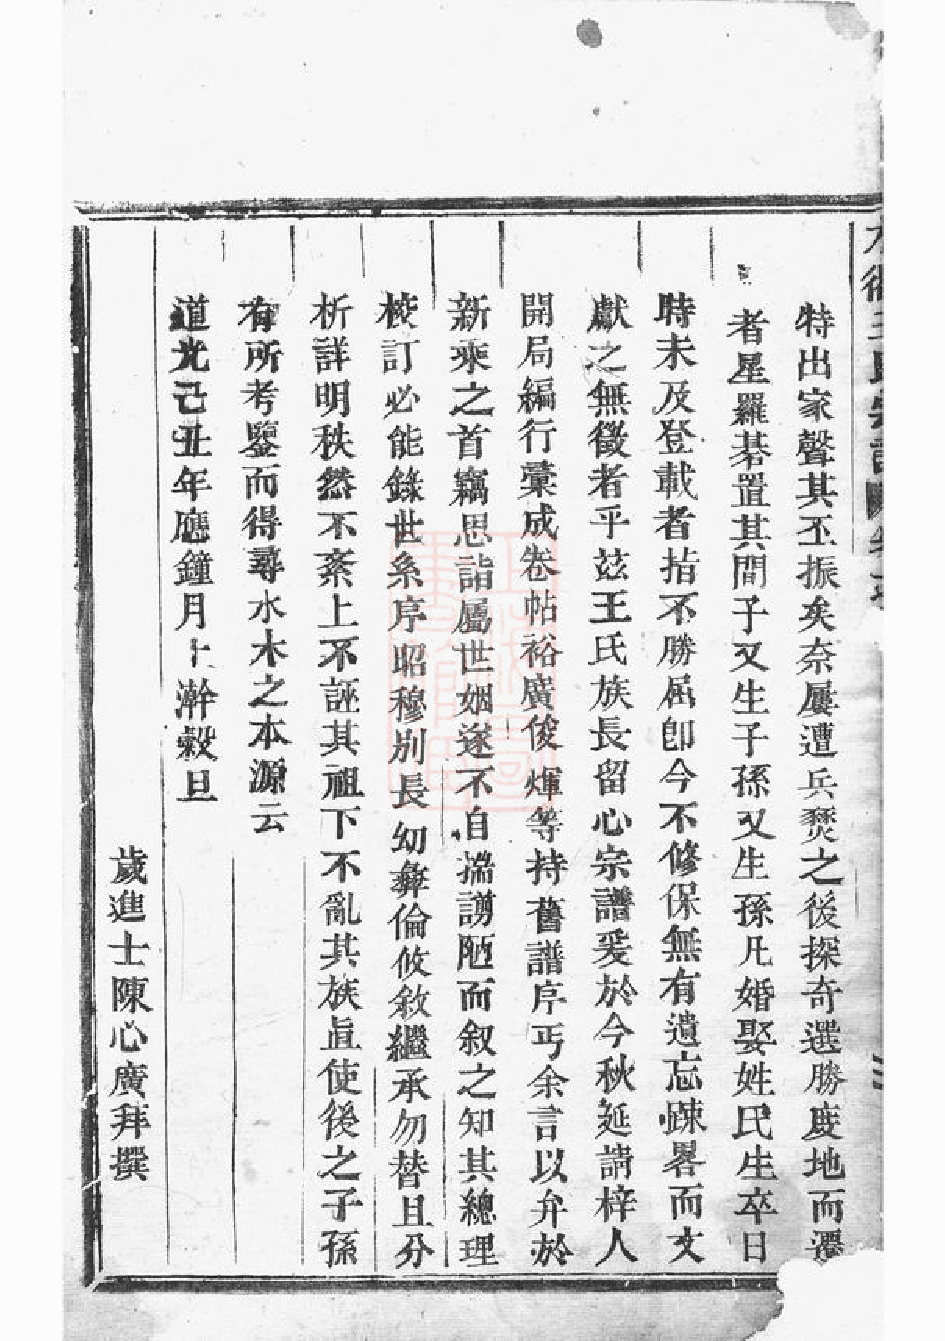 特出家聲其丕振矣奈屢遭兵燹之後探奇選勝度地而遷
者星羅碁置其間子又生子孫又生孫凡婚娶姓氏生卒日
時未及登載者指不勝屈卽今不修保無有遺忘踈畧而文
獻之無徵者乎茲王氏族長留心宗譜爰於今秋延請梓人
開局編行彙成卷帖裕廣俊煇等持舊譜序丐余言以弁於
新乘之首竊思詣屬世姻遂不自揣謭陋而叙之知其總理
校訂必能錄世系序昭穆別長幼彝倫攸敘繼承勿替且分
析詳明秩然不紊上不誣其祖下不亂其族直使後之子孫
有所考鑒而得尋水木之本源云
道光己丑年應鐘月上澣榖旦
歲進士陳心廣拜撰